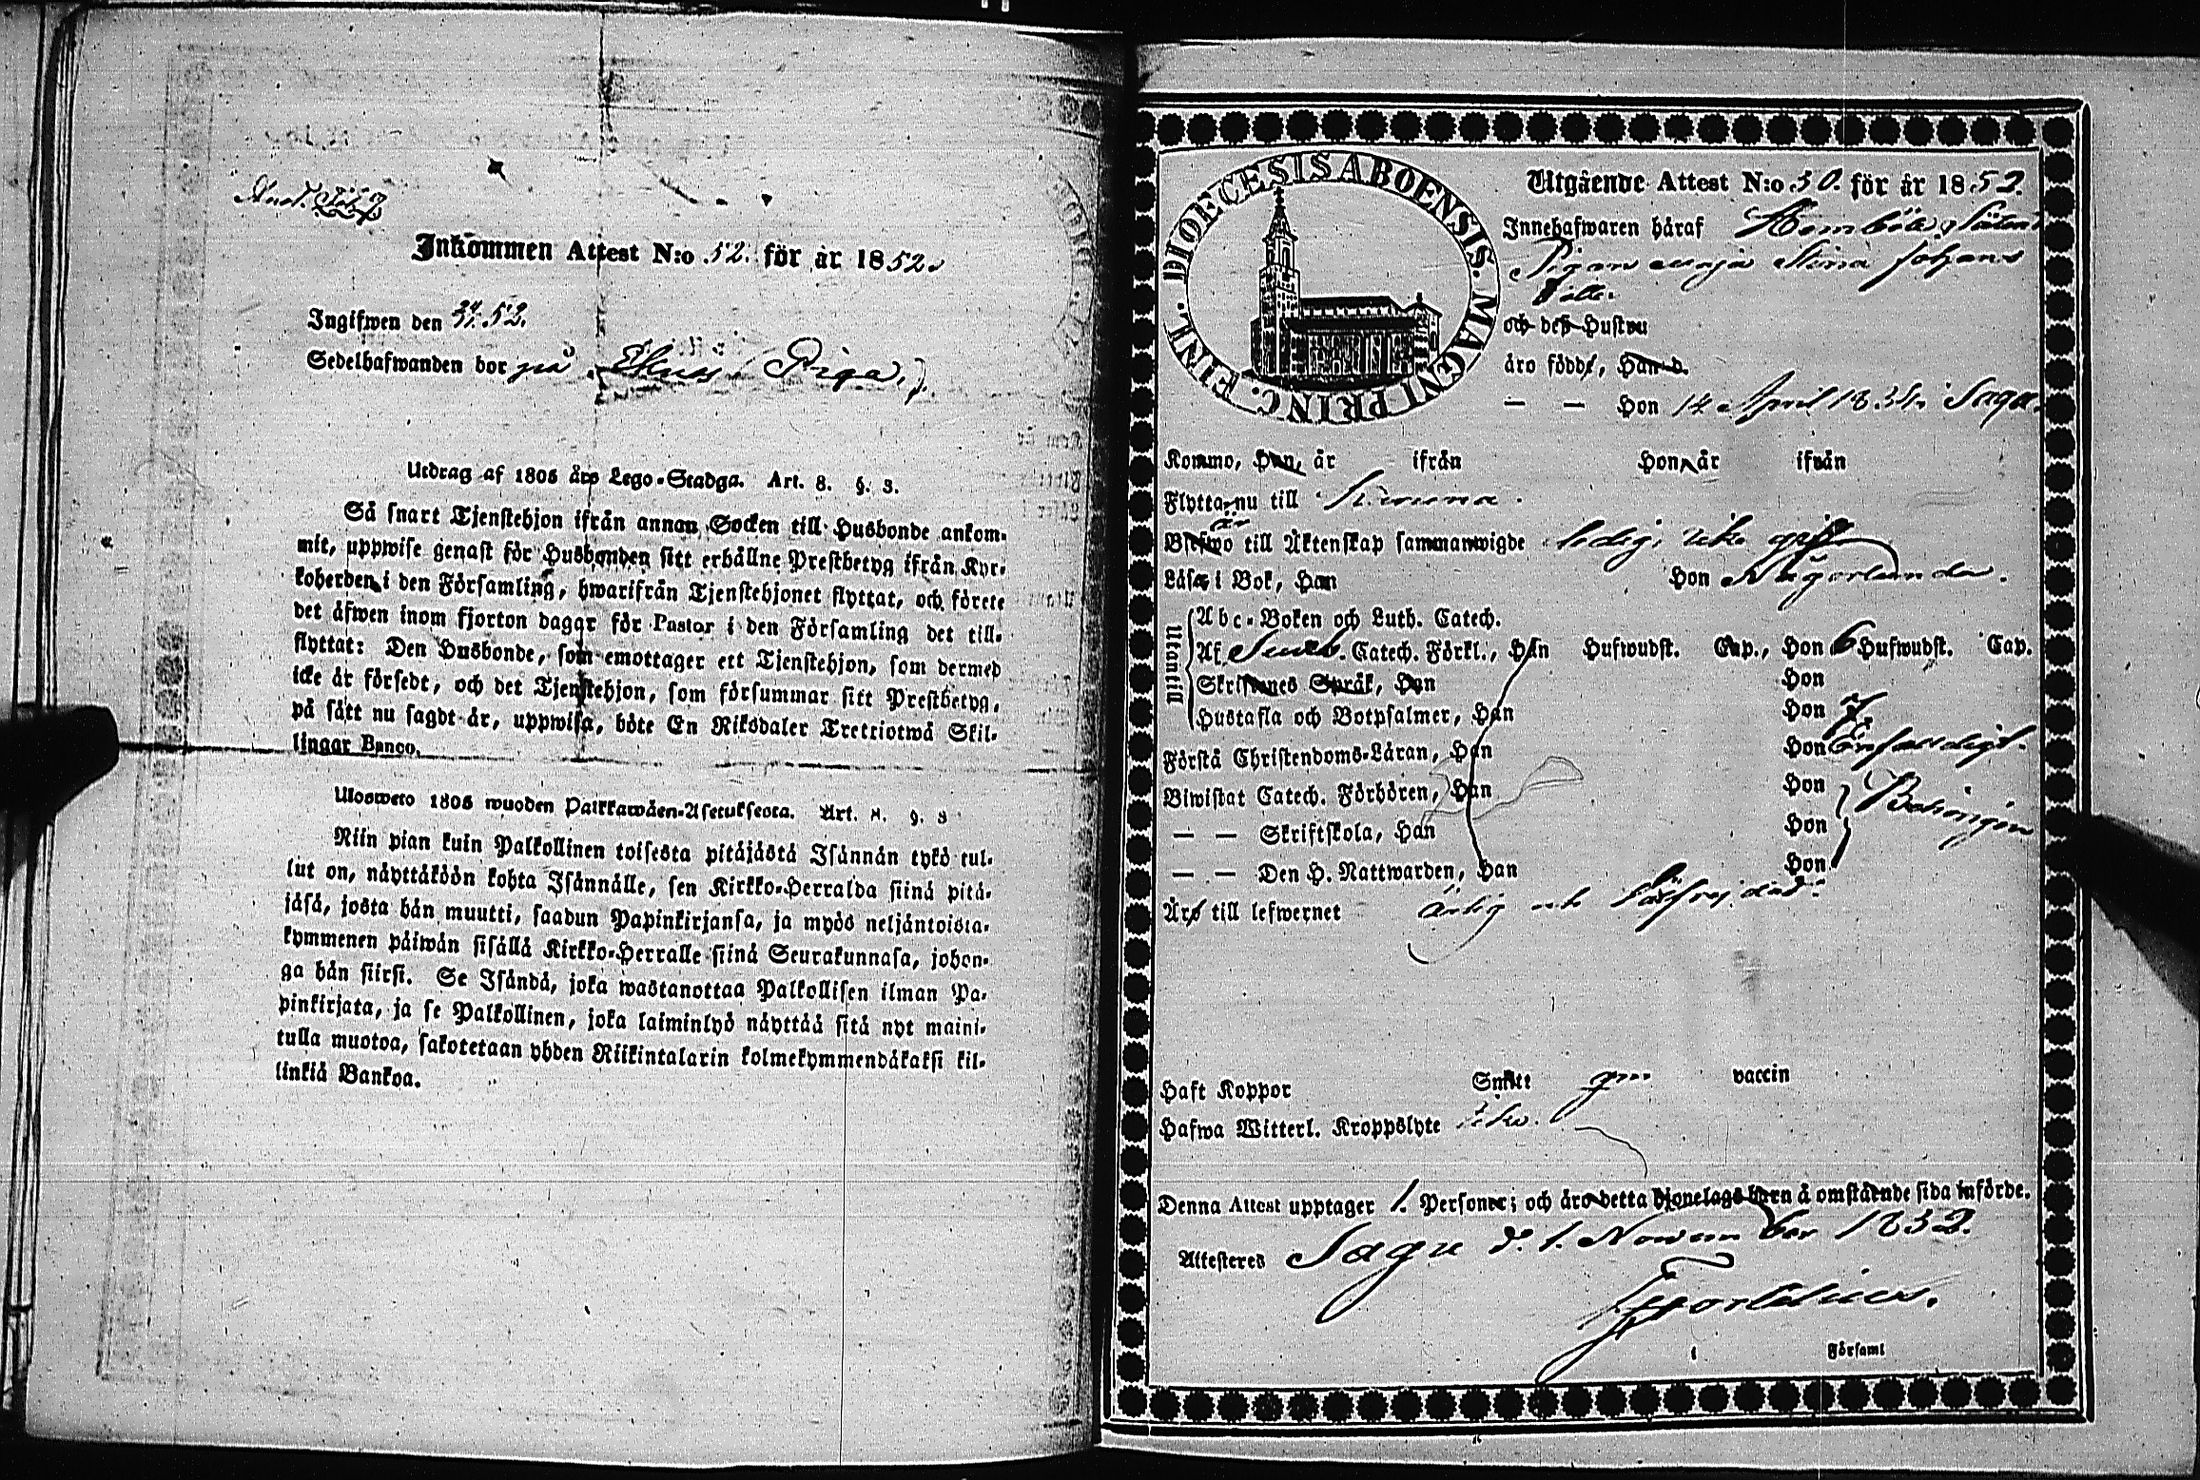 Inkommen Attest N:o 52. för år 1852.
Ingifwen den 52.
Sedelhafwanden bor på Piga.
Utdrag af 1805 års Lego-Stadga. Art. 8. §. 3.
Så snart Tjenstehjon ifrån annan Socken till Husbonde ankom-
mit, uppwise genast för Husbonden sitt erhållne Prestbetyg ifrån Kyr-
koherden i den Församling, hwarifrån Tjenstehjonet flyttat, och förete
det äfwen inom fjorton dagar för Pastor i den Församling det till-
flyttat: Den Husbonde, som emottager ett Tjenstehjon, som dermed
icke är försedt, och det Tjenstehjon, som försummar sitt Prestbetyg,
på sätt nu sagdt är, uppwisa, böte En Riksdaler Tretriotwå Skil-
lingar Banco.
Uloswето 1805 wuoden Palkkawäen-Asetuksesta. Art. 8. §. 3
Niin pian kuin Palkollinen toisesta pitäjästä Isännän tykö tul-
lut on, näyttäköön kohta Isännälle, sen Kirkko-Herralda siinä pitä-
jäsä, josta hän muutti, saadun Papinkirjansa, ja myös neljäntoista-
kymmenen päiwän sisällä Kirkko-Herralle siinä Seurakunnasa, johon-
ga hän siirsi. Se Isändä, joka wastanottaa Palkollisen ilman Pa-
pinkirjata, ja se Palkollinen, joka laiminlyö näyttää sitä nyt maini-
tulla muotoa, sakotetaan yhden Riikintalarin kolmekymmendäkaksi kil-
linkiä Bankoa.
DIOECESIS ABOENSIS. MAGNI PRINC. FINL.
Utgående Attest N:o 30. för år 1852.
Innehafwaren häraf
Pigan Maja Stina Johans
och deß Hustru
äro födde, Han d.
— — Hon 14 April 1834 i Sagu.
Kommo, Han, år ifrån Hon, år ifrån
Flytta nu till Kimina.
är
Blefwo till Äktenskap sammanwigde ledig, icke gift
Läsa i Bok, Han Hon Någorlunda.
Utantill
Abc-Boken och Luth. Catech.
Af Catech. Förkl., Han Hufwudst. Cap., Hon 6 Hufwudst. Cap.
Skriftenes Språk, Han Hon
Hustafla och Botpsalmer, Han Hon
Förstå Christendoms-Läran, Han Hon Enfaldigt.
Biwistat Catech. Förhören, Han Hon
— — Skriftskola, Han Hon Behörigen
— — Den H. Nattwarden, Han Hon
Äro till lefwernet ärlig och
Haft Koppor Smitt gm vaccin
Hafwa Witterl. Kroppslyte icke.
Denna Attest upptager 1. Personer; och äro detta Hjonelags barn å omstående sida införde.
Attesteras Sagu d. 1. November 1852.
i Församl